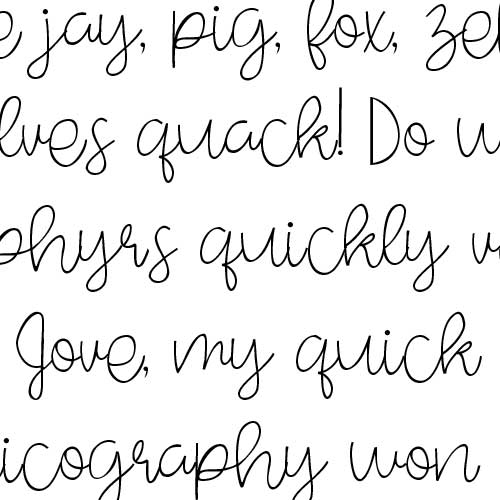 e jay, pig, fox, ze
lves quack! Do w
phyrs quickly v
Jove, my quick
icography won